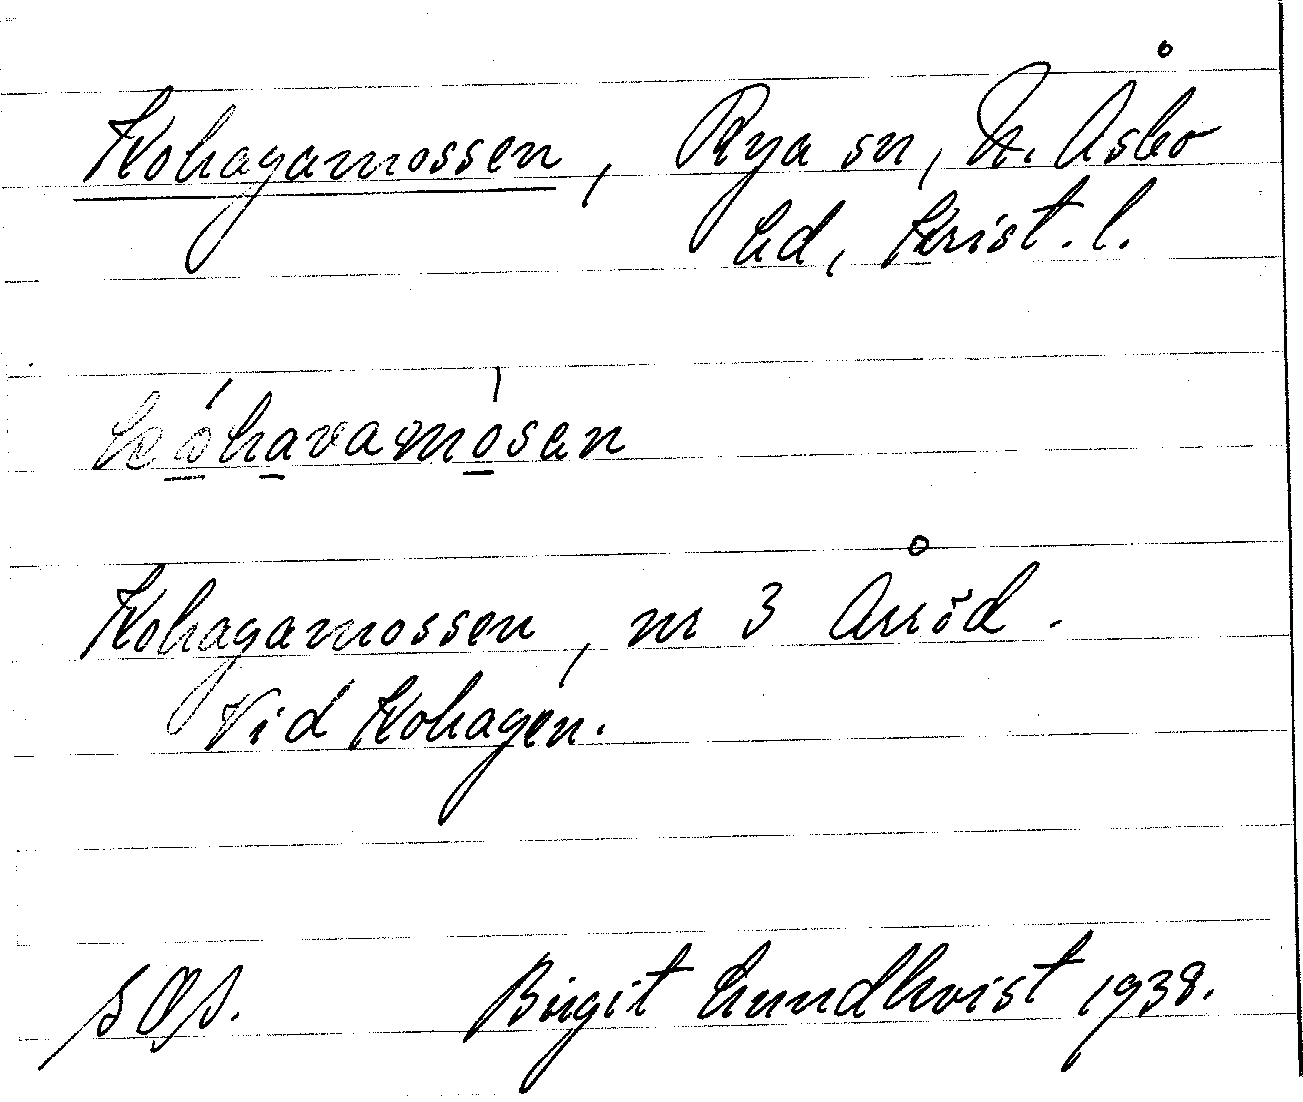 Kohagamossen, Rya sn, N. Åsbo
hd, Krist. l.
kóhavamòsan
Kohagamossen, nr 3 Årröd.
Vid Kohagen.
Birgit Lundkvist 1938.